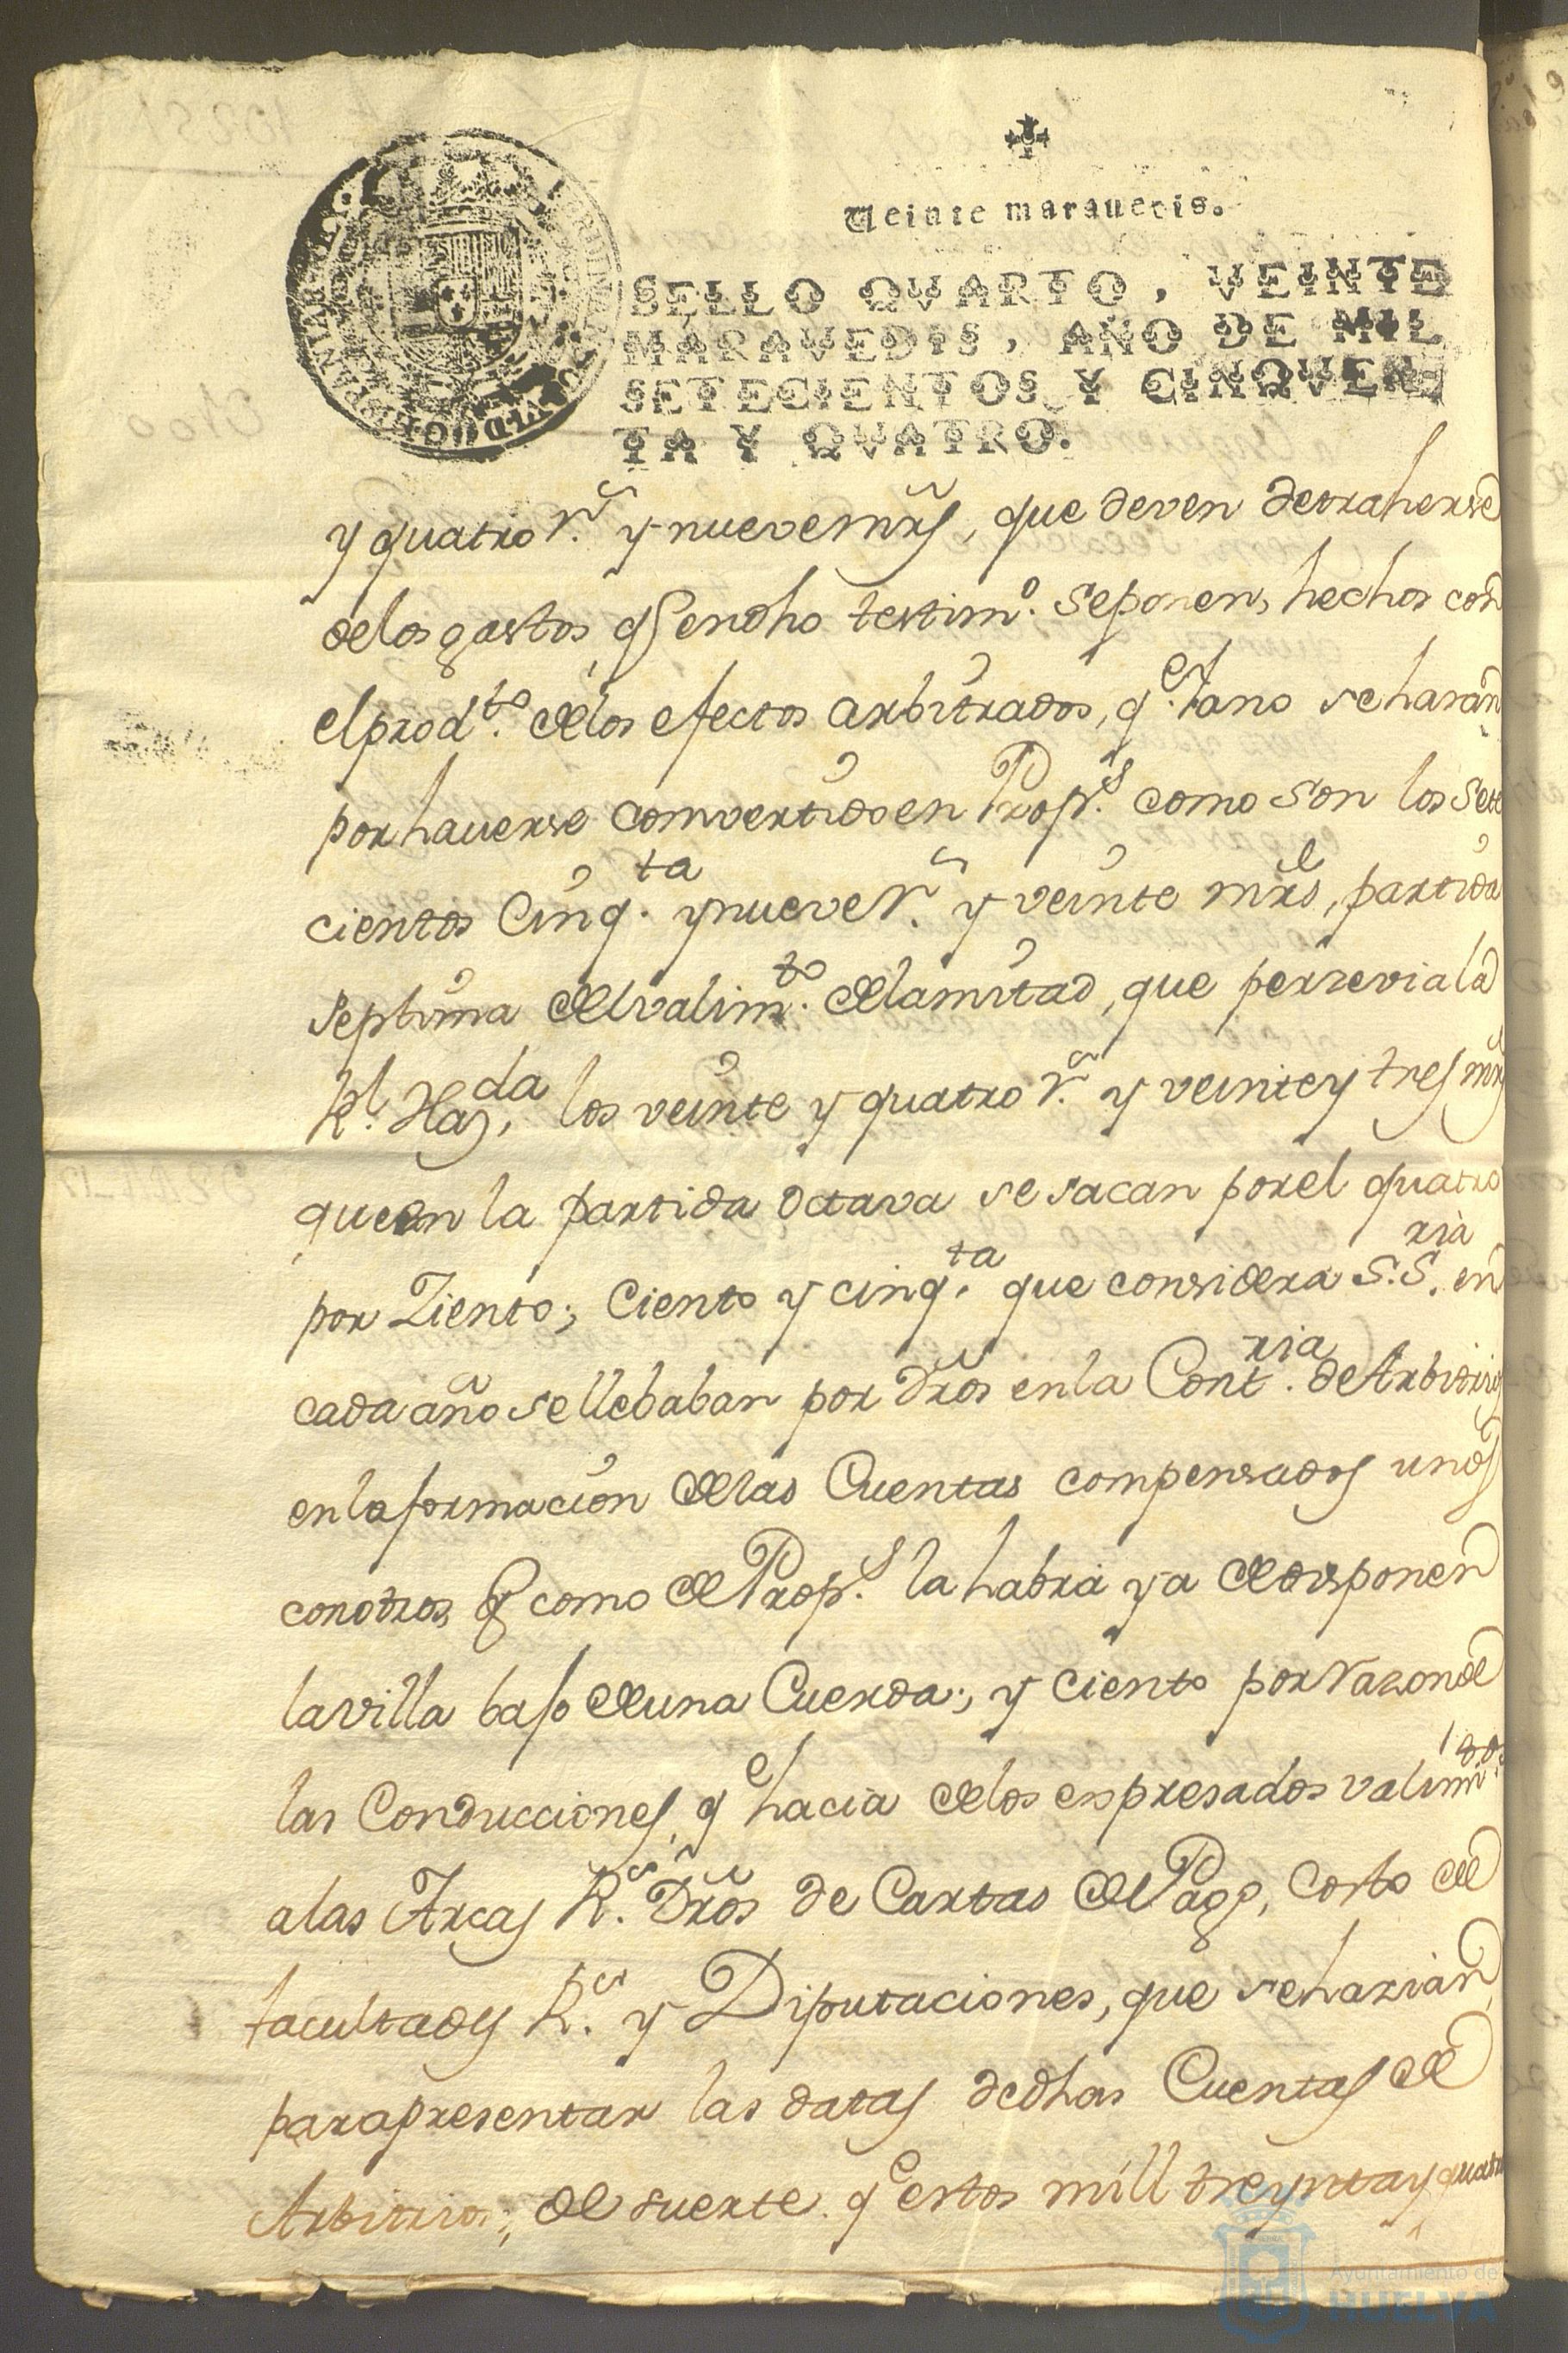 Veinte maravedis.
SELLO QVARTO, VEINTE
MARAVEDIS, AÑO DE MIL
SETECIENTOS Y CINQVEN
TA Y QVATRO.
y quatro r.s y nueve mrs, que deven detraherse
de los gastos q en dho testim.o se ponen, hechos con
el prod.to de los efectos arbitrados, q.e Ia no se haran
por hauerse comvertido en Prop.s como son los sete
cientos Cinq.ta y nueve r.s y veinte mrs, partida
septima del valim.to de la mitad, que perzevia la
R.l Haz.da, los veinte y quatro r.s y veinte y tres mrs
que en la partida octava se sacan por el quatro
por Ziento; Ciento y cinq.ta que considera S.S.ria en
cada año se llebaban por dros en la Cont.ria de Arbitrios
en la formacion de las Cuentas compensados unos
con otros, q como de Prop.s la habrá ya de disponer
la villa bajo de una Cuerda; y Ciento por razon de
las Conducciones, q.e hacia de los expresados valim.tos
a las Arcas R.s Dros de Cartas de Pago, Costo de
facultades R.s y Diputaciones, que se harian
para presentar las datas de dhas Cuentas de
Arbitrios; de suerte q.e estos mill treynta y quatro
Ayuntamiento de
HUELVA